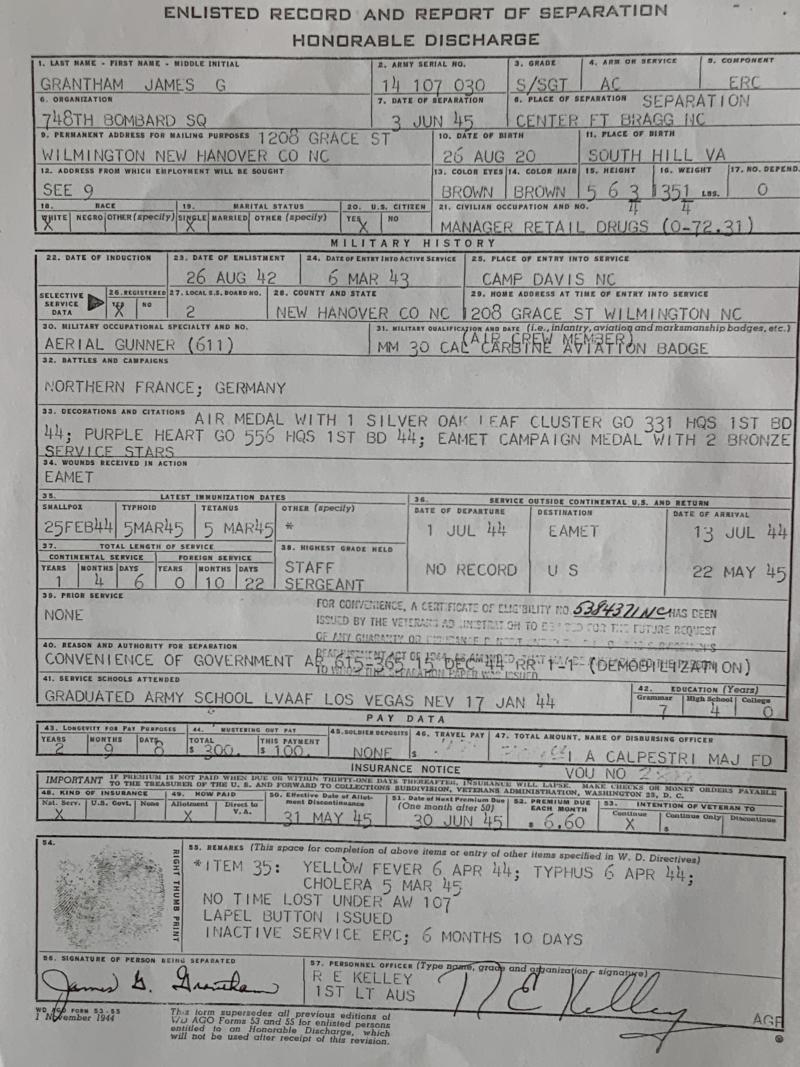 ENLISTED RECORD AND REPORT OF SEPARATION
HONORABLE DISCHARGE
1. LAST NAME - FIRST NAME - MIDDLE INITIAL 2. ARMY SERIAL NO. 3. GRADE 4. ARM OR SERVICE 5. COMPONENT
GRANTHAM JAMES G 14 107 030 S/SGT AC ERC
6. ORGANIZATION 7. DATE OF SEPARATION 8. PLACE OF SEPARATION SEPARATION
748TH BOMBARD SQ 3 JUN 45 CENTER FT BRAGG NC
9. PERMANENT ADDRESS FOR MAILING PURPOSES 1208 GRACE ST 10. DATE OF BIRTH 11. PLACE OF BIRTH
WILMINGTON NEW HANOVER CO NC 26 AUG 20 SOUTH HILL VA
12. ADDRESS FROM WHICH EMPLOYMENT WILL BE SOUGHT 13. COLOR EYES 14. COLOR HAIR 15. HEIGHT 16. WEIGHT 17. NO. DEPEND.
SEE 9 BROWN BROWN 5 6 3/4 135 1/4 LBS. 0
18. RACE 19. MARITAL STATUS 20. U.S. CITIZEN 21. CIVILIAN OCCUPATION AND NO.
WHITE NEGRO OTHER (specify) SINGLE MARRIED OTHER (specify) YES NO
X X X MANAGER RETAIL DRUGS (0-72.31)
MILITARY HISTORY
22. DATE OF INDUCTION 23. DATE OF ENLISTMENT 24. DATE OF ENTRY INTO ACTIVE SERVICE 25. PLACE OF ENTRY INTO SERVICE
26 AUG 42 6 MAR 43 CAMP DAVIS NC
SELECTIVE SERVICE DATA 26. REGISTERED YES NO 27. LOCAL S.S. BOARD NO. 28. COUNTY AND STATE 29. HOME ADDRESS AT TIME OF ENTRY INTO SERVICE
X 2 NEW HANOVER CO NC 1208 GRACE ST WILMINGTON NC
30. MILITARY OCCUPATIONAL SPECIALTY AND NO. 31. MILITARY QUALIFICATION AND DATE (i.e., infantry, aviation and marksmanship badges, etc.)
(AIR CREW MEMBER)
AERIAL GUNNER (611) MM 30 CAL CARBINE AVIATION BADGE
32. BATTLES AND CAMPAIGNS
NORTHERN FRANCE; GERMANY
33. DECORATIONS AND CITATIONS AIR MEDAL WITH 1 SILVER OAK LEAF CLUSTER GO 331 HQS 1ST BD
44; PURPLE HEART GO 556 HQS 1ST BD 44; EAMET CAMPAIGN MEDAL WITH 2 BRONZE
SERVICE STARS
34. WOUNDS RECEIVED IN ACTION
EAMET
35. LATEST IMMUNIZATION DATES 36. SERVICE OUTSIDE CONTINENTAL U.S. AND RETURN
SMALLPOX TYPHOID TETANUS OTHER (specify) DATE OF DEPARTURE DESTINATION DATE OF ARRIVAL
25FEB44 5MAR45 5 MAR45 * 1 JUL 44 EAMET 13 JUL 44
37. TOTAL LENGTH OF SERVICE 38. HIGHEST GRADE HELD
CONTINENTAL SERVICE FOREIGN SERVICE
YEARS MONTHS DAYS YEARS MONTHS DAYS STAFF NO RECORD U S 22 MAY 45
1 4 6 0 10 22 SERGEANT
39. PRIOR SERVICE
NONE
FOR CONVENIENCE, A CERTIFICATE OF ELIGIBILITY NO. 5384371 NC HAS BEEN
ISSUED BY THE VETERANS ADMINISTRATION TO BE USED FOR THE FUTURE REQUEST
OF ANY GUARANTY OR INSURANCE
40. REASON AND AUTHORITY FOR SEPARATION
CONVENIENCE OF GOVERNMENT AR 615-365 15 DEC 44 RR 1-1 (DEMOBILIZATION)
TO WHOM THIS SEPARATION PAPER WAS ISSUED.
41. SERVICE SCHOOLS ATTENDED 42. EDUCATION (Years)
Grammar High School College
GRADUATED ARMY SCHOOL LVAAF LOS VEGAS NEV 17 JAN 44 7 4 0
PAY DATA
43. LONGEVITY FOR PAY PURPOSES 44. MUSTERING OUT PAY 45. SOLDIER DEPOSITS 46. TRAVEL PAY 47. TOTAL AMOUNT, NAME OF DISBURSING OFFICER
YEARS MONTHS DAYS TOTAL THIS PAYMENT
2 9 8 $ 300. $ 100. NONE $ I A CALPESTRI MAJ FD
INSURANCE NOTICE VOU NO
IMPORTANT IF PREMIUM IS NOT PAID WHEN DUE OR WITHIN THIRTY-ONE DAYS THEREAFTER, INSURANCE WILL LAPSE. MAKE CHECKS OR MONEY ORDERS PAYABLE
TO THE TREASURER OF THE U. S. AND FORWARD TO COLLECTIONS SUBDIVISION, VETERANS ADMINISTRATION, WASHINGTON 25, D. C.
48. KIND OF INSURANCE 49. HOW PAID 50. Effective Date of Allotment Discontinuance 51. Date of Next Premium Due (One month after 50) 52. PREMIUM DUE EACH MONTH 53. INTENTION OF VETERAN TO
Nat. Serv. U.S. Govt. None Allotment Direct to V.A. Continue Continue Only Discontinue
X X 31 MAY 45 30 JUN 45 $ 6.60 X $
54. RIGHT THUMB PRINT
55. REMARKS (This space for completion of above items or entry of other items specified in W. D. Directives)
*ITEM 35: YELLOW FEVER 6 APR 44; TYPHUS 6 APR 44;
CHOLERA 5 MAR 45
NO TIME LOST UNDER AW 107
LAPEL BUTTON ISSUED
INACTIVE SERVICE ERC; 6 MONTHS 10 DAYS
56. SIGNATURE OF PERSON BEING SEPARATED 57. PERSONNEL OFFICER (Type name, grade and organization - signature)
James G. Grantham R E KELLEY R E Kelley
1ST LT AUS AGF
WD AGO FORM 53-55
1 November 1944
This form supersedes all previous editions of
WD AGO Forms 53 and 55 for enlisted persons
entitled to an Honorable Discharge, which
will not be used after receipt of this revision.